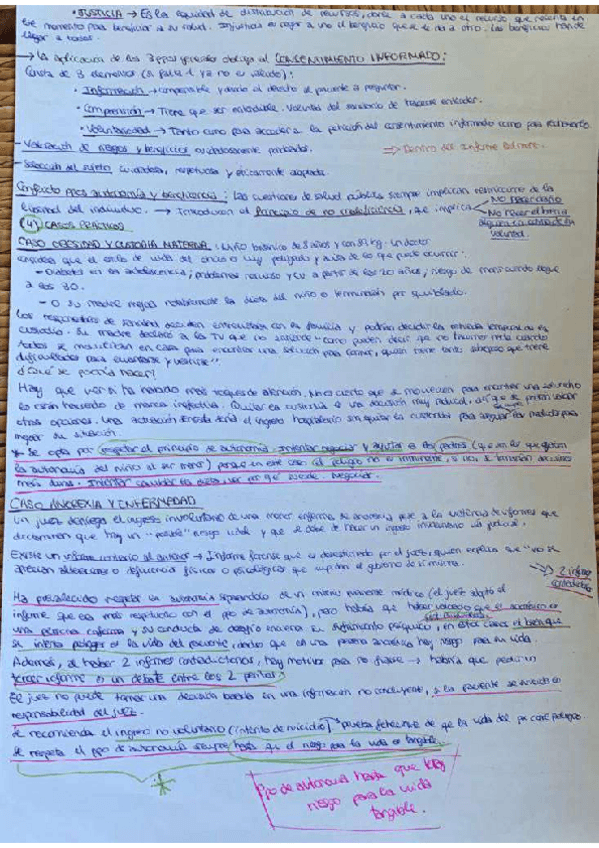 • JUSTICIA → Es la equidad de distribución de recursos, donde a cada uno el recurso que necesita en
ese momento para beneficiar a su salud. Injusticia es negar a uno el beneficio que se le da a otro. Los beneficios han de
llegar a todos.
→ La aplicación de los 3 ppos obliga al CONSENTIMIENTO INFORMADO:
Consta de 3 elementos (si falta 1 ya no es válido):
• Información → comprensible y dando el derecho al paciente a preguntar.
• Comprensión → Tiene que ser entendible. Voluntad del sanitario de hacerse entender.
• Voluntariedad → Tanto como para acceder a la petición del consentimiento informado como para
- Valoración de riesgos y beneficios cuidadosamente ponderados.
⇒ Dentro del informe
- Selección del sujeto cuidadosa, respetuosa y éticamente adaptada.
Conflicto ppos autonomía y beneficencia: Las cuestiones de salud pública siempre implican restricciones de la
libertad del individuo. → Introducen al Principio de no maleficencia, que implica
No hacer daño
No hacer el bien a
alguien en contra de su
voluntad.
(4) CASOS PRÁCTICOS
CASO OBESIDAD Y CUSTODIA MATERNA: Niño británico de 8 años y con 89 kg. Un doctor
considera que el estilo de vida del chico es muy peligroso y avisa de lo que puede ocurrir:
- Diabetes en la adolescencia; problemas y CV a partir de los 20 años; riesgo de muerte cuando llegue
a los 30.
- O su madre mejora notablemente la dieta del niño o terminarían por quitárselo.
Los responsables de sanidad deciden entrevistarse con la familia y podrían decidir la retirada temporal de la
custodia. Su madre declaró a la TV que no "como pueden decir que no
todos se en casa para encontrar una solución para
dificultades para y vestirse"
¿Qué se podría hacer?
Hay que ver si ha habido más toques de atención. No es cierto que se movilicen para encontrar una solución
lo están haciendo de manera inefectiva. Quitar la custodia es una decisión muy radical, así que se podrían buscar
otras opciones. Una actuación adecuada sería el ingreso hospitalario sin quitar la custodia para las medidas para
mejorar su situación.
Se opta por respetar el principio de autonomía. Intentar negociar y ayudar a los padres (que son los que ejercen
la autonomía del niño al ser menor) porque en este caso el peligro no es inminente, si no, se tomarían decisiones
más duras. Negociar.
CASO ANOREXIA Y ENFERMEDAD
Un juez deniega el ingreso involuntario de una menor enferma de anorexia pese a la existencia de informes que
dictaminan que hay un "posible" riesgo vital y que se debe de hacer un ingreso involuntario
Existe un informe contrario al anterior → Informe forense que es desestimado por el juez, quien explica que "no se
aprecian alteraciones o deficiencias físicas o psicológicas que impidan el gobierno de sí misma.
⇒ 2 informes
contradictorios
Ha prevalecido respetar la autonomía apoyándose en un informe médico (el juez adopta el
informe que es más respetuoso con el ppo de autonomía), pero habría que haber valorado que el anoréxico es
una persona enferma y su conducta de desafío enmarca su sufrimiento psíquico, en estos casos el bien que
se intenta proteger es la vida del paciente, dando que en una persona anoréxica hay riesgo para su vida.
Además, al haber 2 informes contradictorios, hay motivos para no fiarse → habría que pedir un
tercer informe o un debate entre los 2 peritos.
El juez no puede tomar una decisión basada en una información no concluyente, si la paciente se suicida es
responsabilidad del juez.
Se recomienda el ingreso no voluntario (intento de suicidio) → prueba fehaciente de que la vida del pac corre peligro.
Se respeta el ppo de autonomía siempre hasta que el riesgo para la vida es tangible.
Ppo de autonomía hasta que hay
riesgo para la vida
tangible.